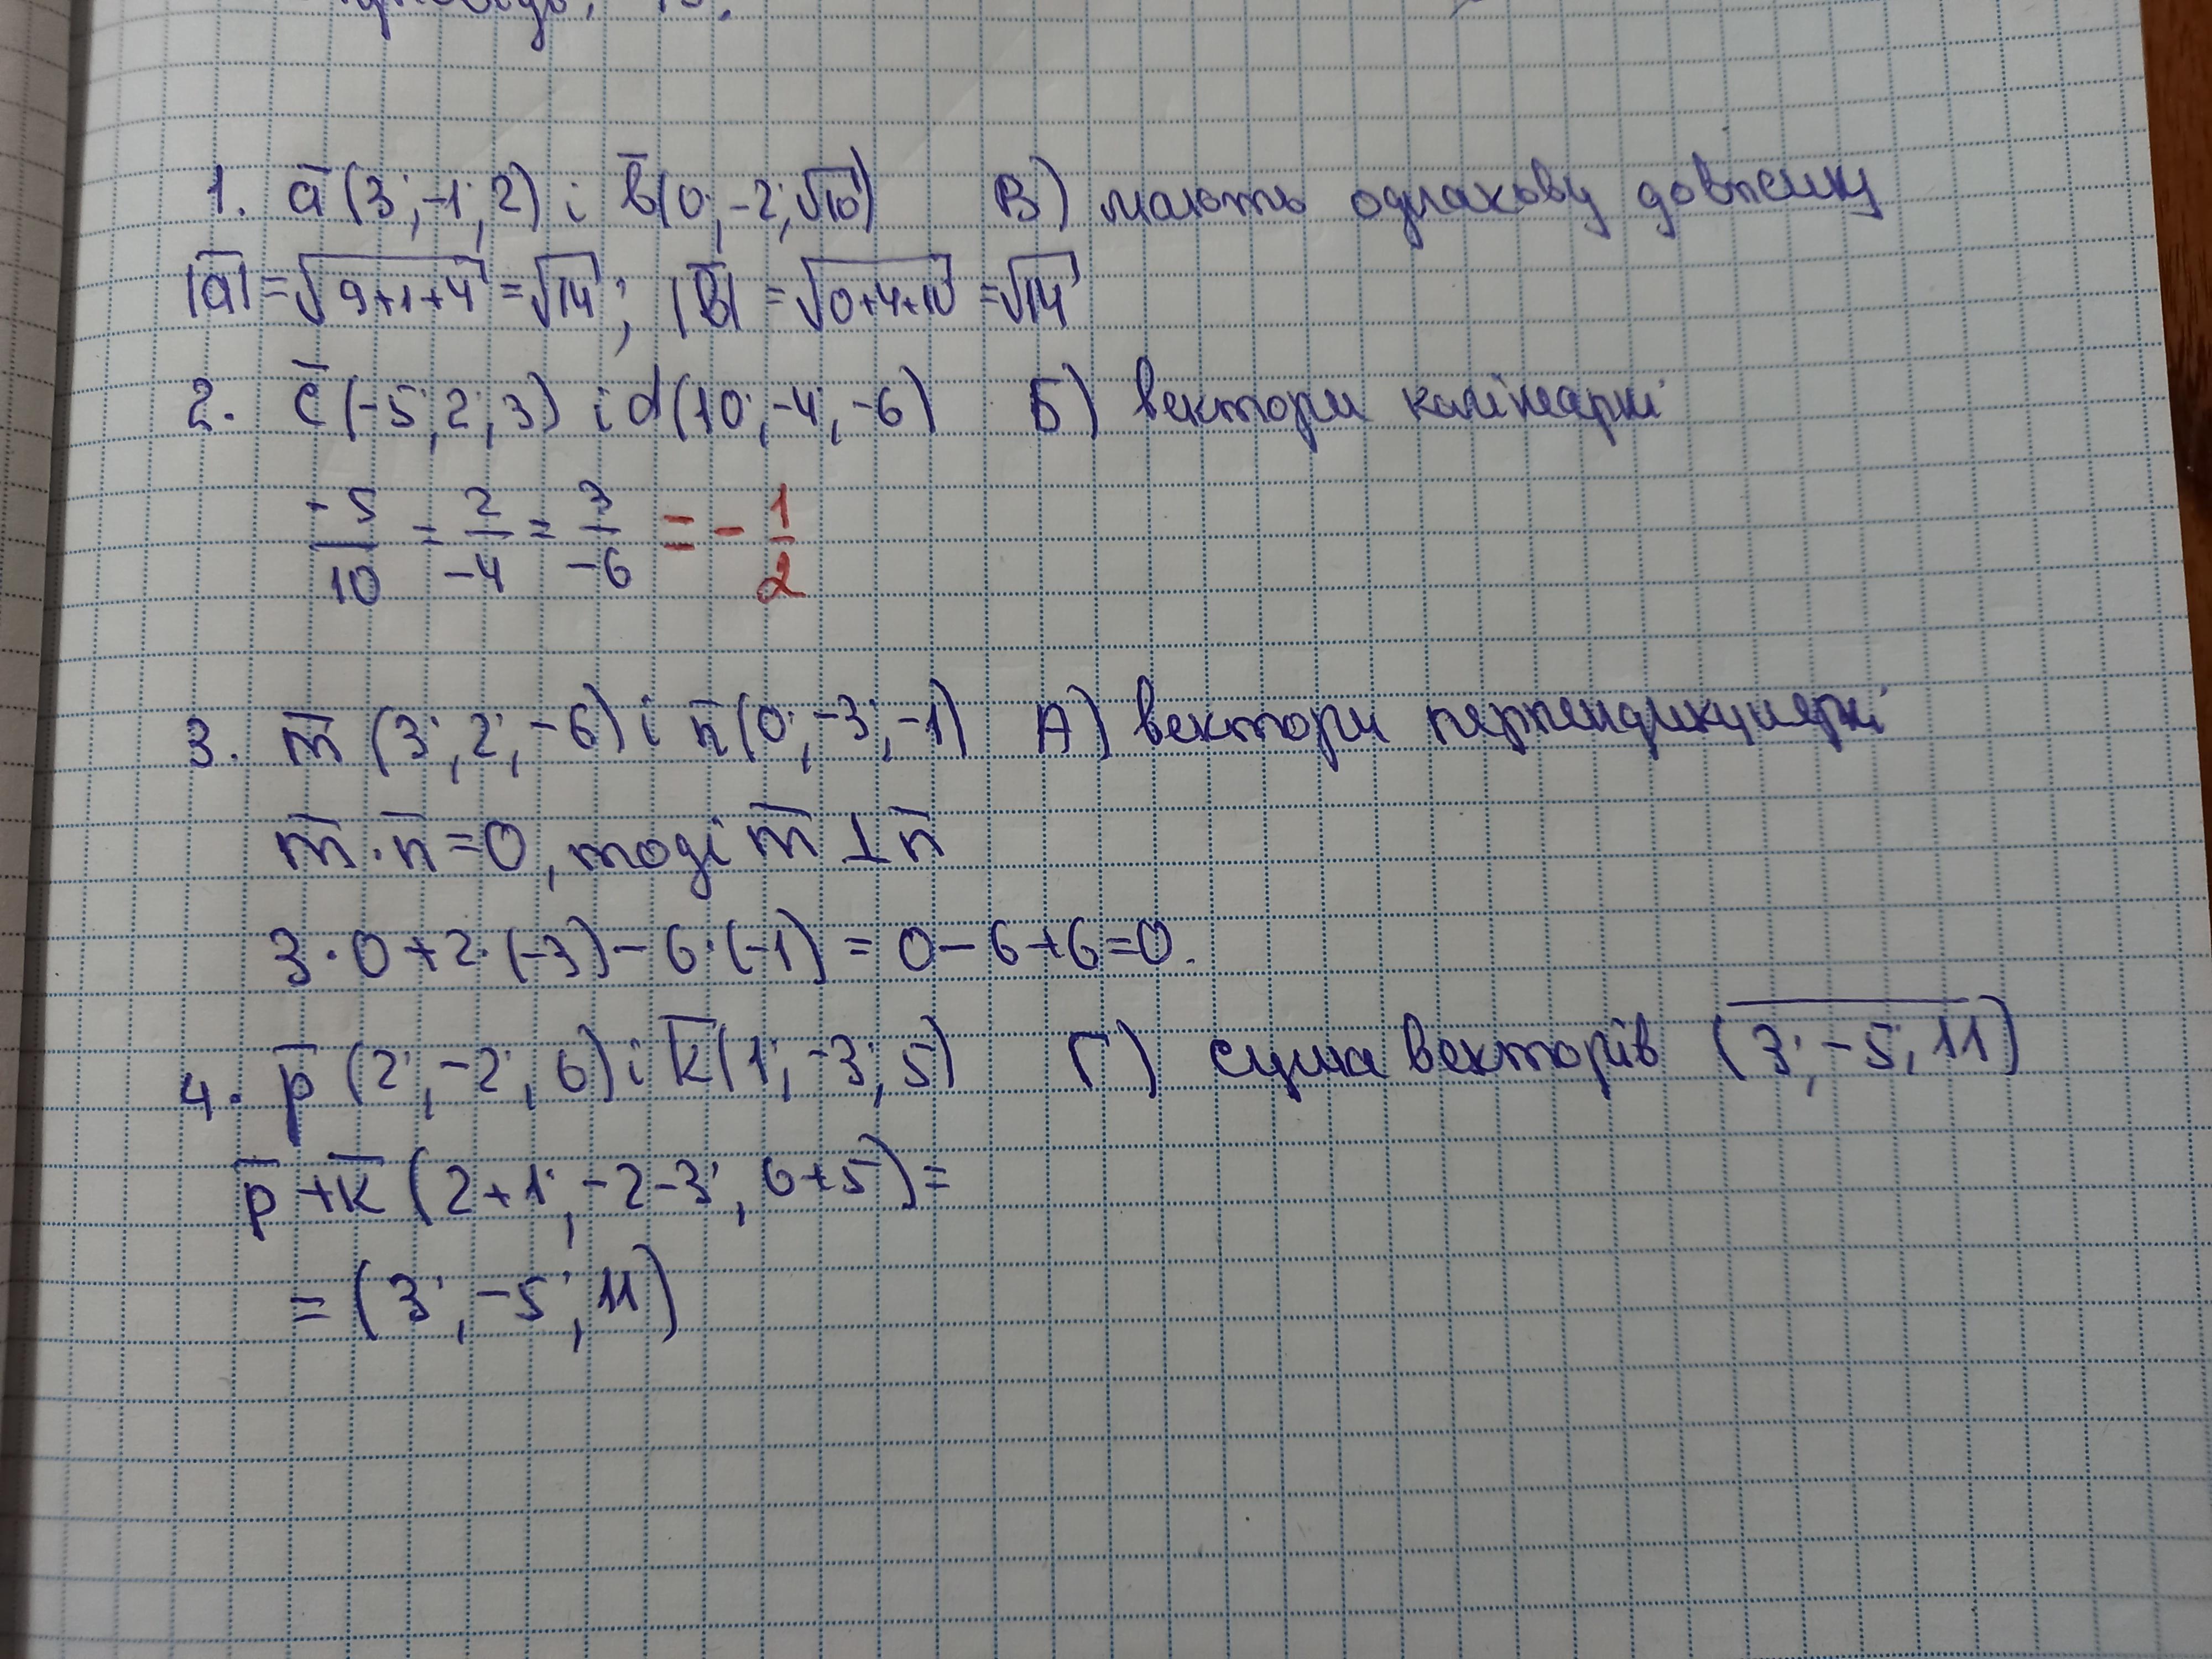 1. a̅ (3; -1; 2) i b̅(0; -2; √10) В) мають однакову довжину
|a̅| = √9+1+4 = √14; |b̅| = √0+4+10 = √14
2. c̅ (-5; 2; 3) i d(10; -4; -6) Б) вектори колінеарні
-5/10 = 2/-4 = 3/-6 = - 1/2
3. m̅ (3; 2; -6) i n̅ (0; -3; -1) А) вектори перпендикулярні
m̅ · n̅ = 0, тоді m̅ ⊥ n̅
3·0+2·(-3)-6·(-1) = 0-6+6=0.
4. p̅ (2; -2; 6) i k̅ (1; -3; 5) Г) сума векторів (3; -5; 11)
p̅ + k̅ (2+1; -2-3; 6+5) =
= (3; -5; 11)